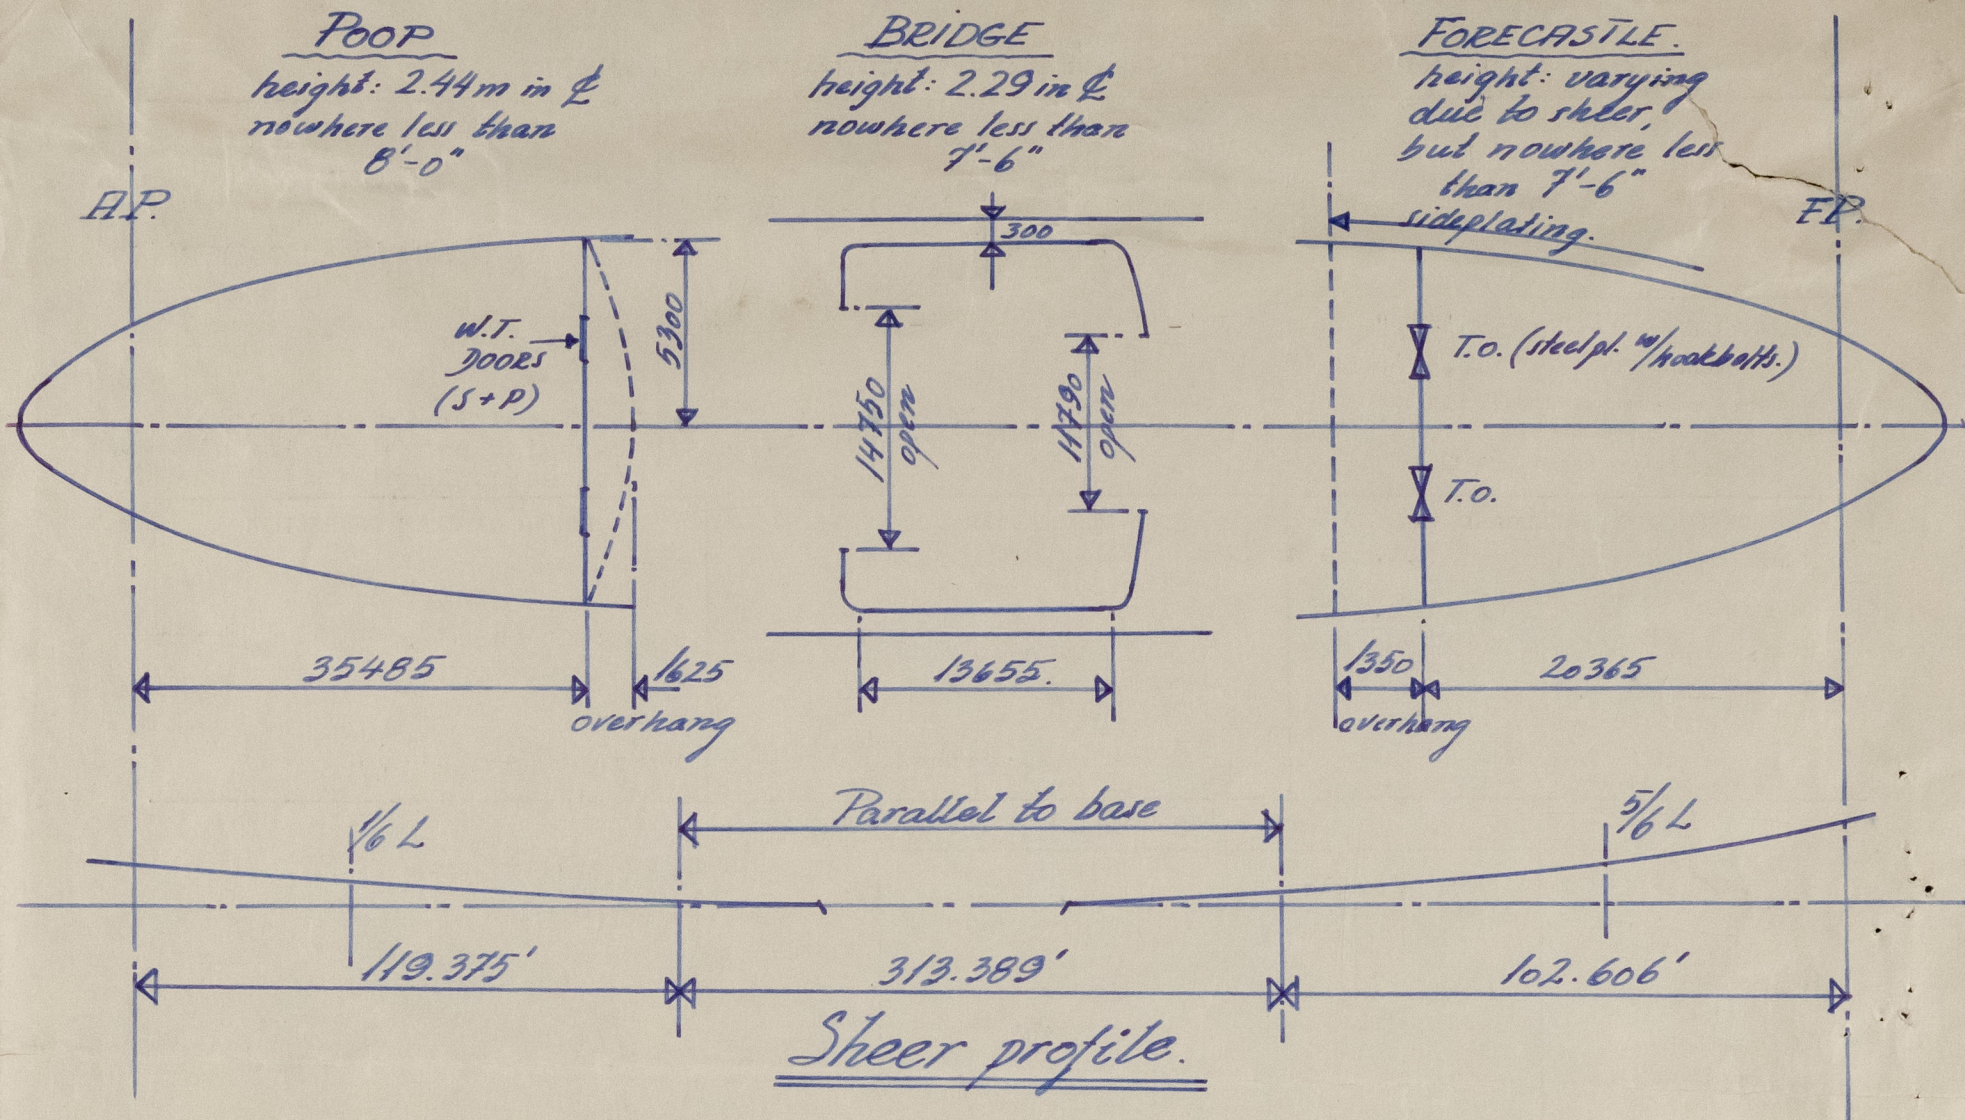 POOP
height: 2.44m in ℄
nowhere less than
8'-0"
BRIDGE
height: 2.29 in ℄
nowhere less than
7'-6"
FORECASTLE.
height: varying
due to sheer,
but nowhere less
than 7'-6"
sideplating.
A.P.
F.P.
300
W.T.
DOORS
(S+P)
5300
14750
open
11790
open
T.O. (steelpl. w/hookbolts.)
T.O.
35485
1625
overhang
13655.
1350
overhang
20365
1/6 L
Parallel to base
5/6 L
119.375'
313.389'
102.606'
Sheer profile.